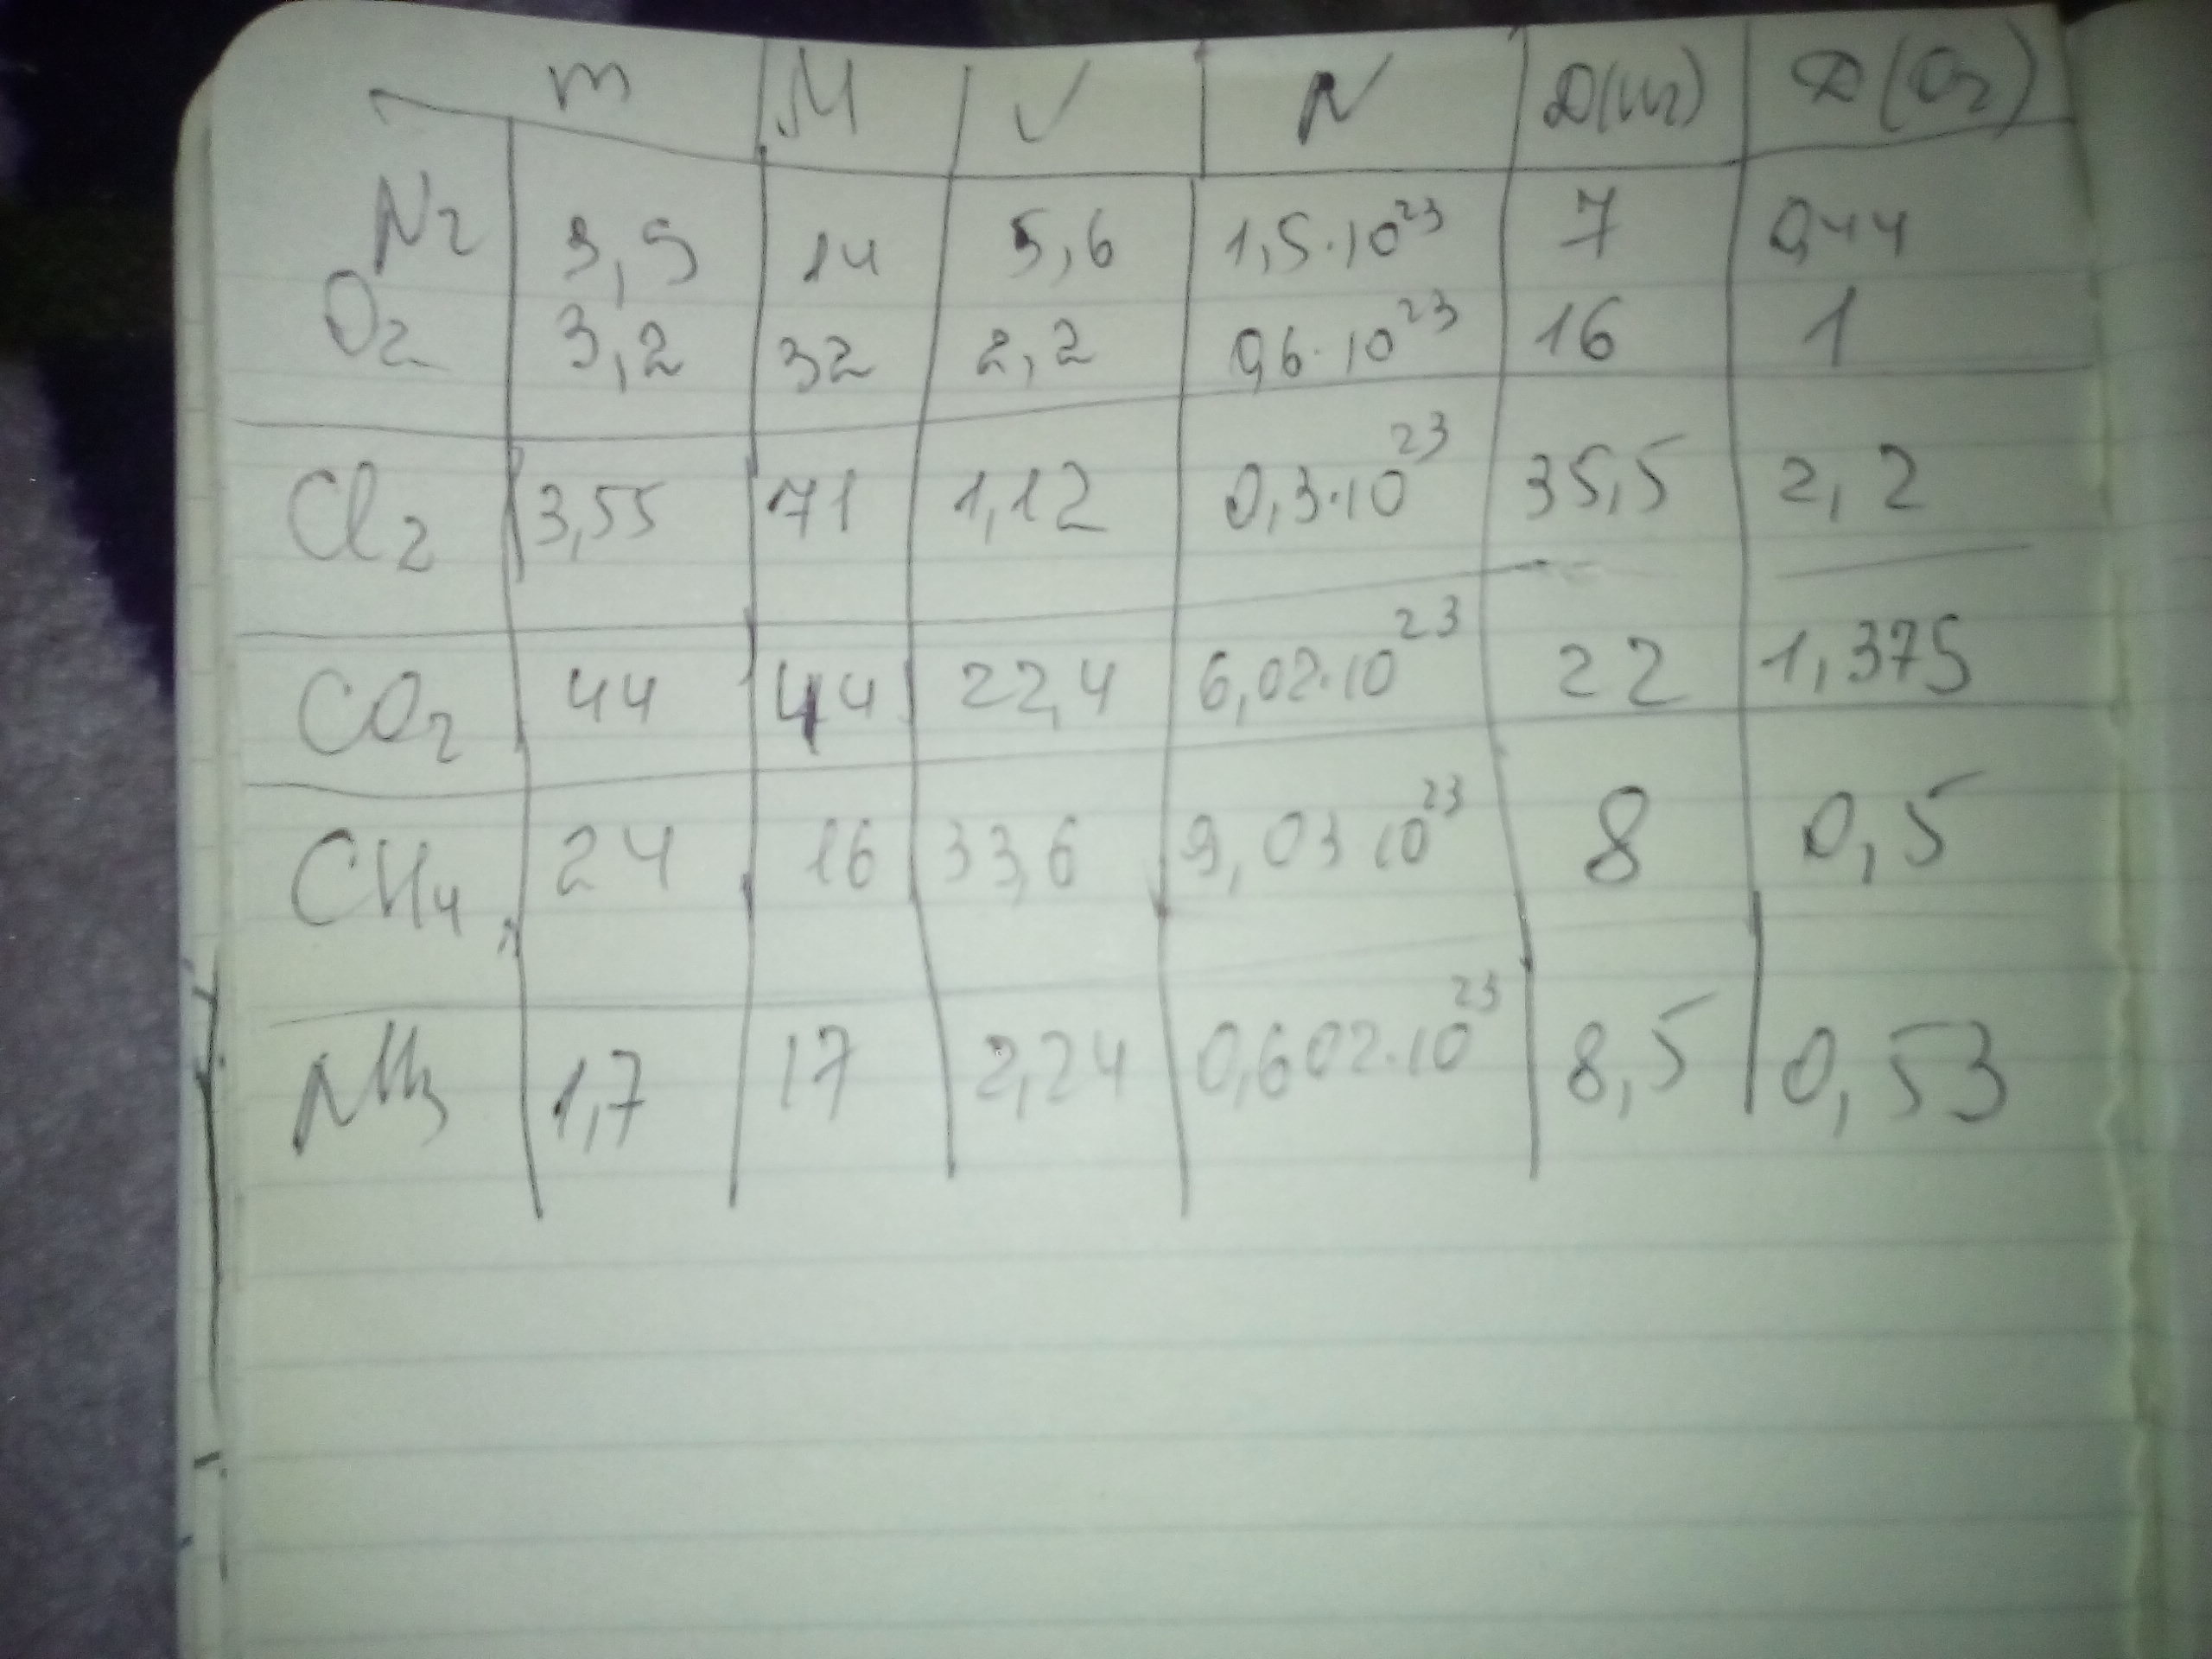 m M V N D(H₂) D(O₂)
N₂ 3,5 14 5,6 1,5·10²³ 7 0,44
O₂ 3,2 32 2,2 0,6·10²³ 16 1
Cl₂ 3,55 71 1,12 0,3·10²³ 35,5 2,2
CO₂ 44 44 22,4 6,02·10²³ 22 1,375
CH₄ 24 16 33,6 9,03 10²³ 8 0,5
NH₃ 1,7 17 2,24 0,602·10²³ 8,5 0,53